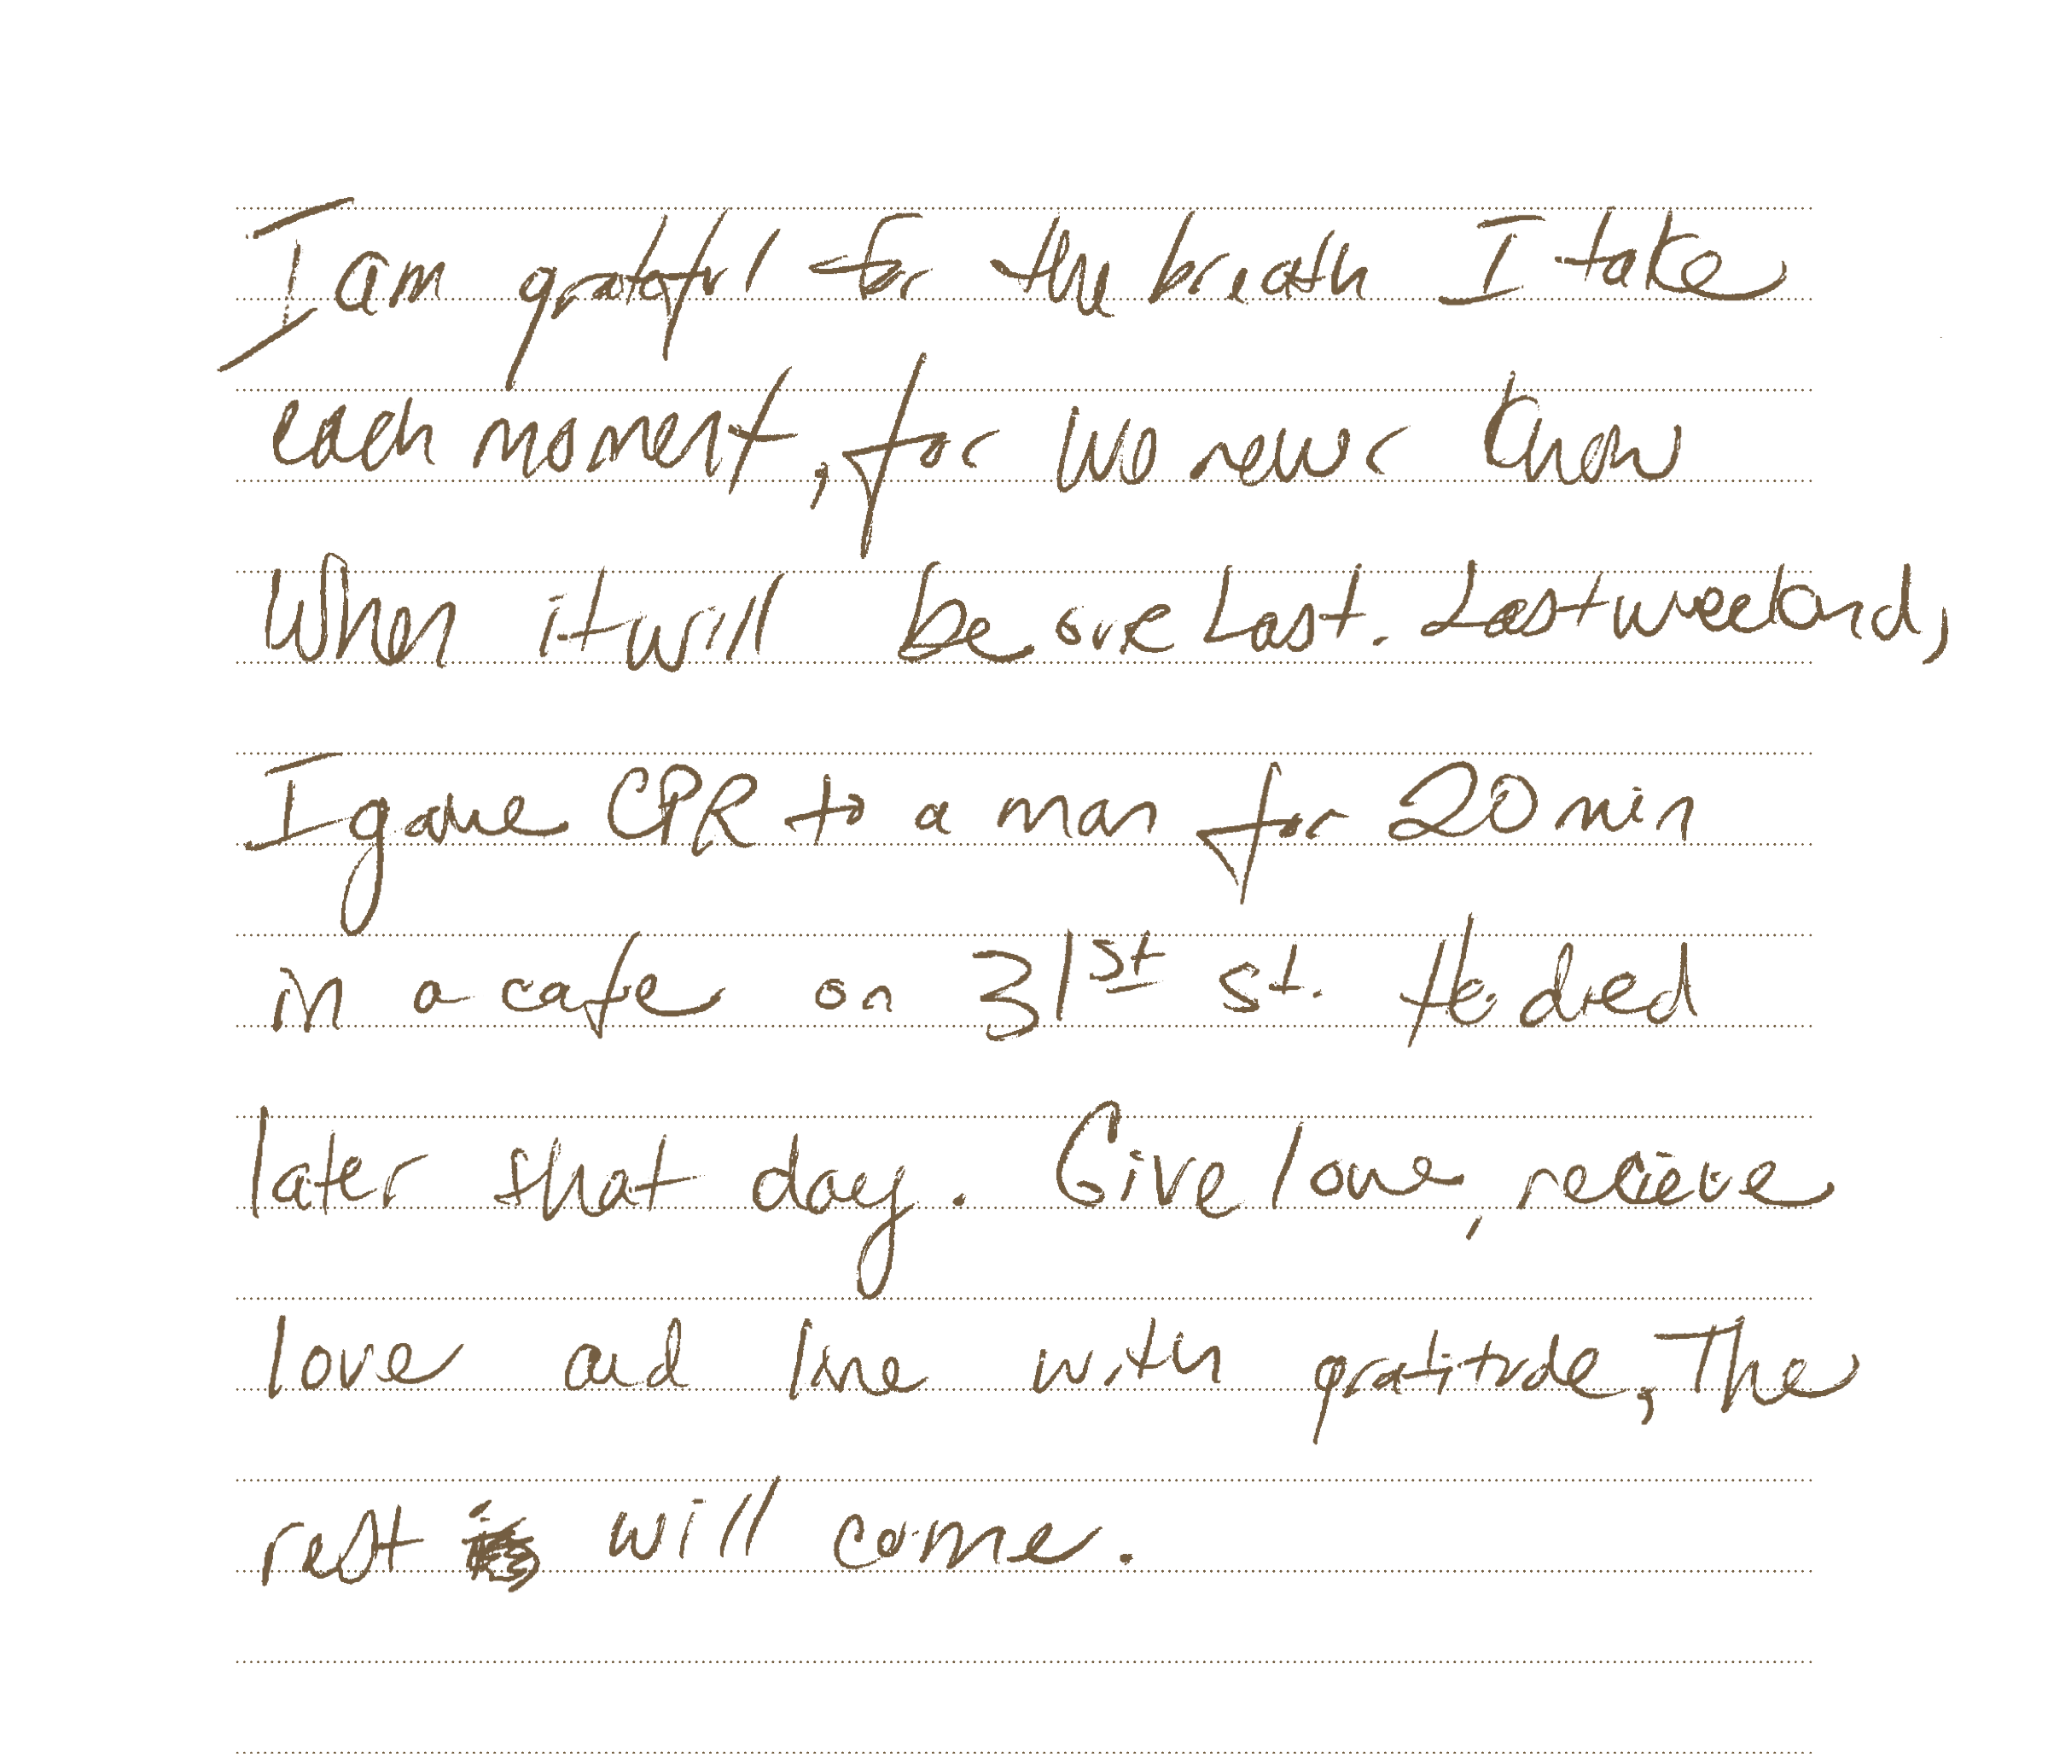 I am grateful for the breath I take
each moment, for we never know
When it will be our Last. Last weekend,
I gave CPR to a man for 20 min
in a cafe on 31st St. He died
later that day. Give love, recieve
love and live with gratitude, The
rest will come.